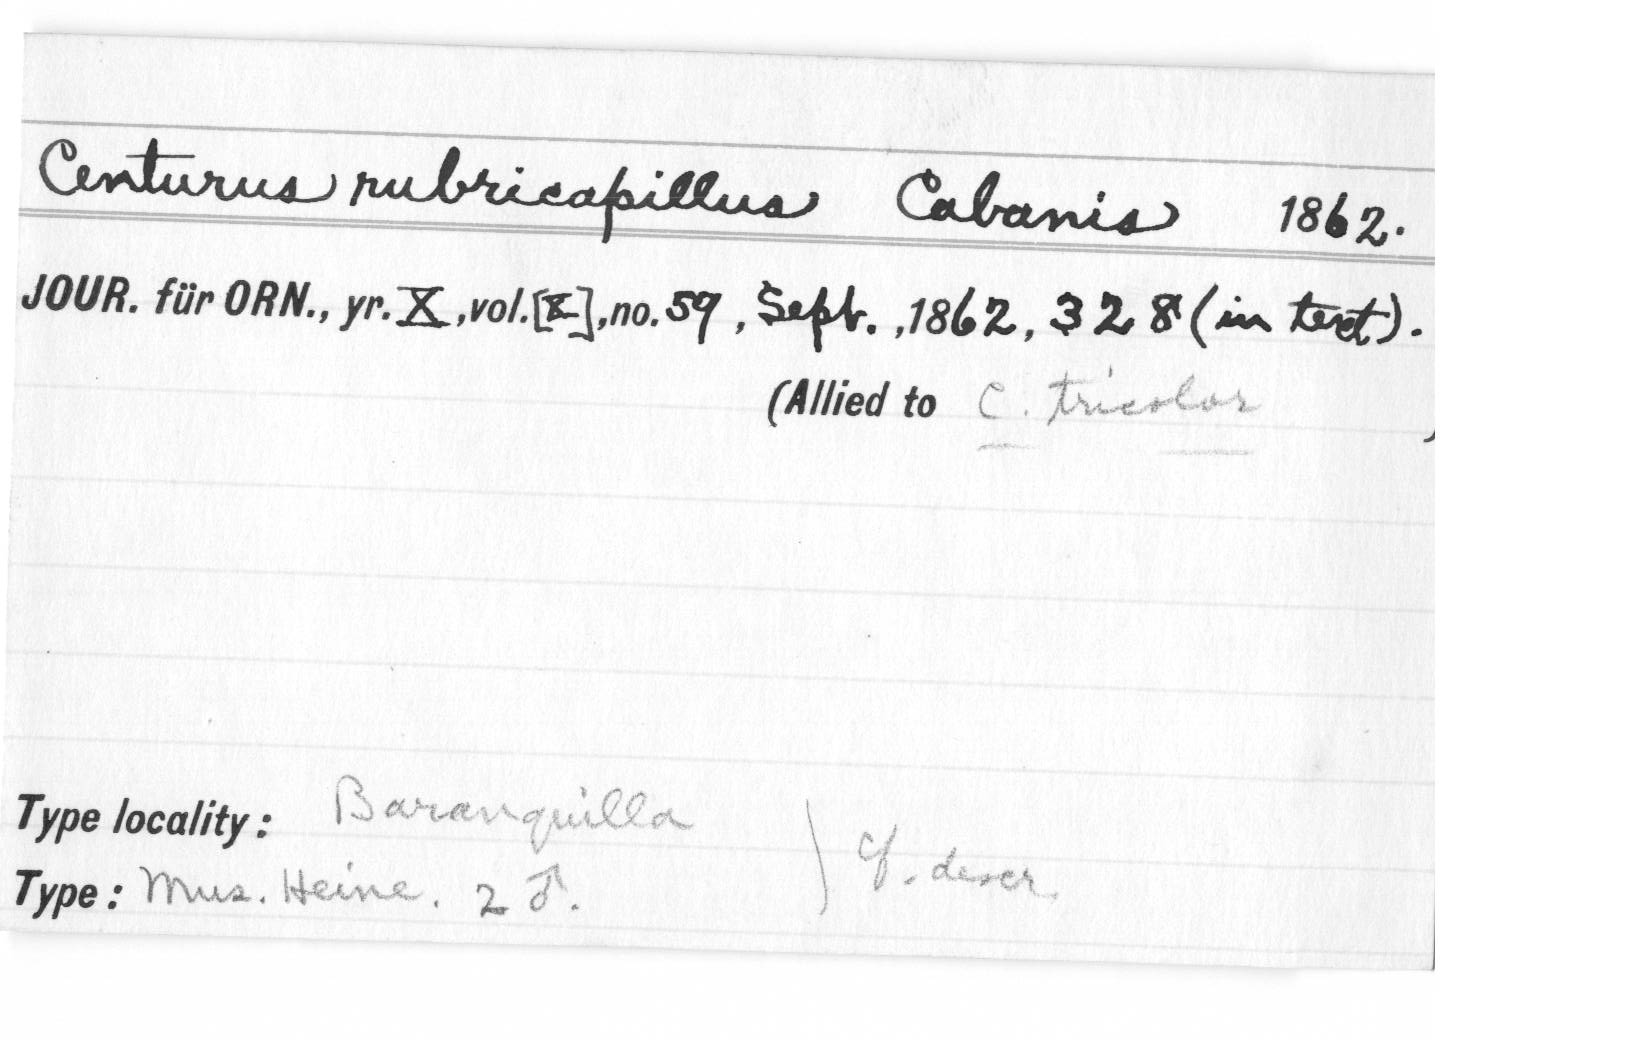 Centurus rubricapillus Cabanis 1862.
JOUR. für ORN., yr. X, vol. [X], no. 59, Sept., 1862, 328 (in text).
(Allied to C. tricolor )
Type locality: Baranquilla
Type: Mus. Heine. 2 ♂. } cf. descr.